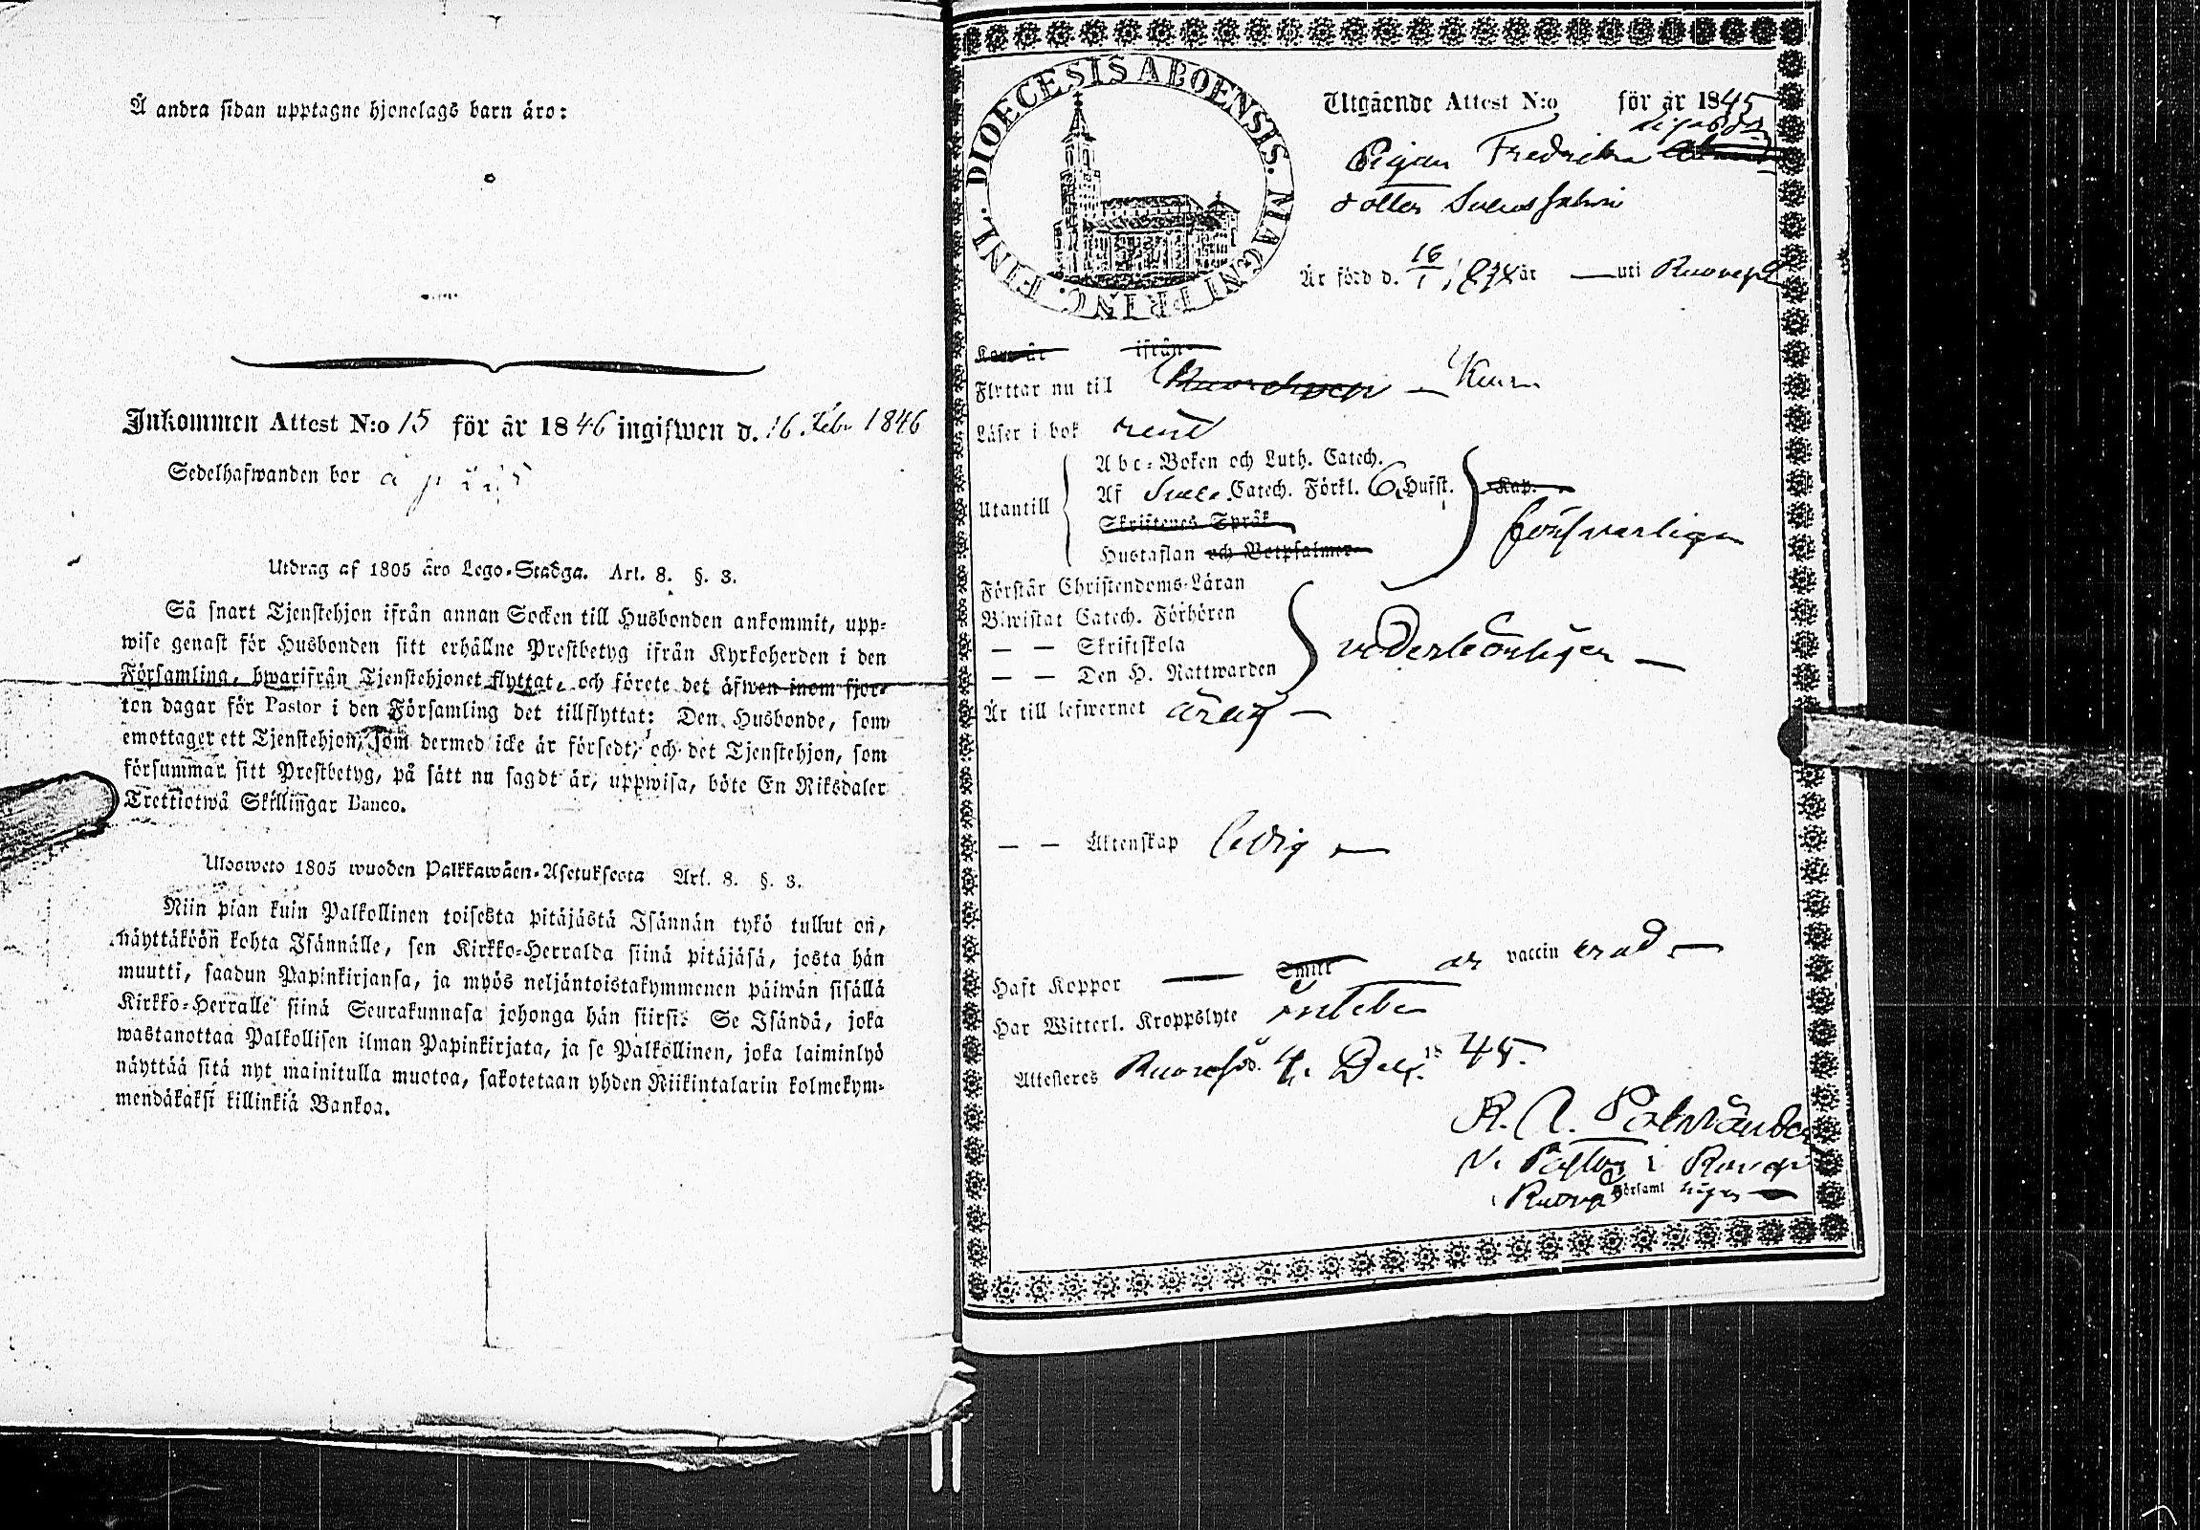 Å andra sidan upptagne hjonelags barn äro:
Inkommen Attest N:o 15 för år 1846 ingifwen d. 16 Febr 1846
Sedelhafwanden bor
Utdrag af 1805 års Lego-Stadga. Art. 8. §. 3.
Så snart Tjenstehjon ifrån annan Socken till Husbonden ankommit, upp-
wise genast för Husbonden sitt erhållne Prestbetyg ifrån Kyrkoherden i den
Församling, hwarifrån Tjenstehjonet flyttat, och förete det äfwen inom fjor-
ton dagar för Pastor i den Församling det tillflyttat: Den Husbonde, som
emottager ett Tjenstehjon, som dermed icke är försedt, och det Tjenstehjon, som
försummar sitt Prestbetyg, på sätt nu sagdt är, uppwisa, böte En Riksdaler
Trettiotwå Skillingar Banco.
Ulosweto 1805 wuoden Palkkawäen-Asetuksesta Art. 8. §. 3.
Niin pian kuin Palkollinen toisesta pitäjästä Isännän tykö tullut on,
näyttäköön kohta Isännälle, sen Kirkko-Herralda siinä pitäjäsä, josta hän
muutti, saadun Papinkirjansa, ja myös neljäntoistakymmenen päiwän sisällä
Kirkko-Herralle siinä Seurakunnasa johonga hän siirsi: Se Isändä, joka
wastanottaa Palkollisen ilman Papinkirjata, ja se Palkollinen, joka laiminlyö
näyttää sitä nyt mainitulla muotoa, sakotetaan yhden Riikintalarin kolmekym-
mendäkaksi killinkiä Bankoa.
DIOECESIS ABOENSIS. MAGNI PRINC. FINL.
Utgående Attest N:o för år 1845
Pigan Fredrika
dotter
Är född d. 16/1 år — uti Ruovesi
Kom år ifrån
Flyttar nu till — Kuru
Läser i bok rent
Utantill
Abc-Boken och Luth. Catech.
Af Catech. Förkl. 6 Hufst. Kap.
Skriftenes Språk
Hustaflan och Botpsalmer
försvarligen
Förstår Christendoms-Läran
Biwistat Catech. Förhören
— — Skriftskola
— — Den H. Nattwarden
vederbörligen —
Är till lefwernet ärlig —
— — Äktenskap ledig —
Haft Koppor — är vaccinerad —
Har Witterl. Kroppslyte
Attesteres Ruovesi d. 4 Dec. 1845.
V. Pastor i Ruovesi
Församl